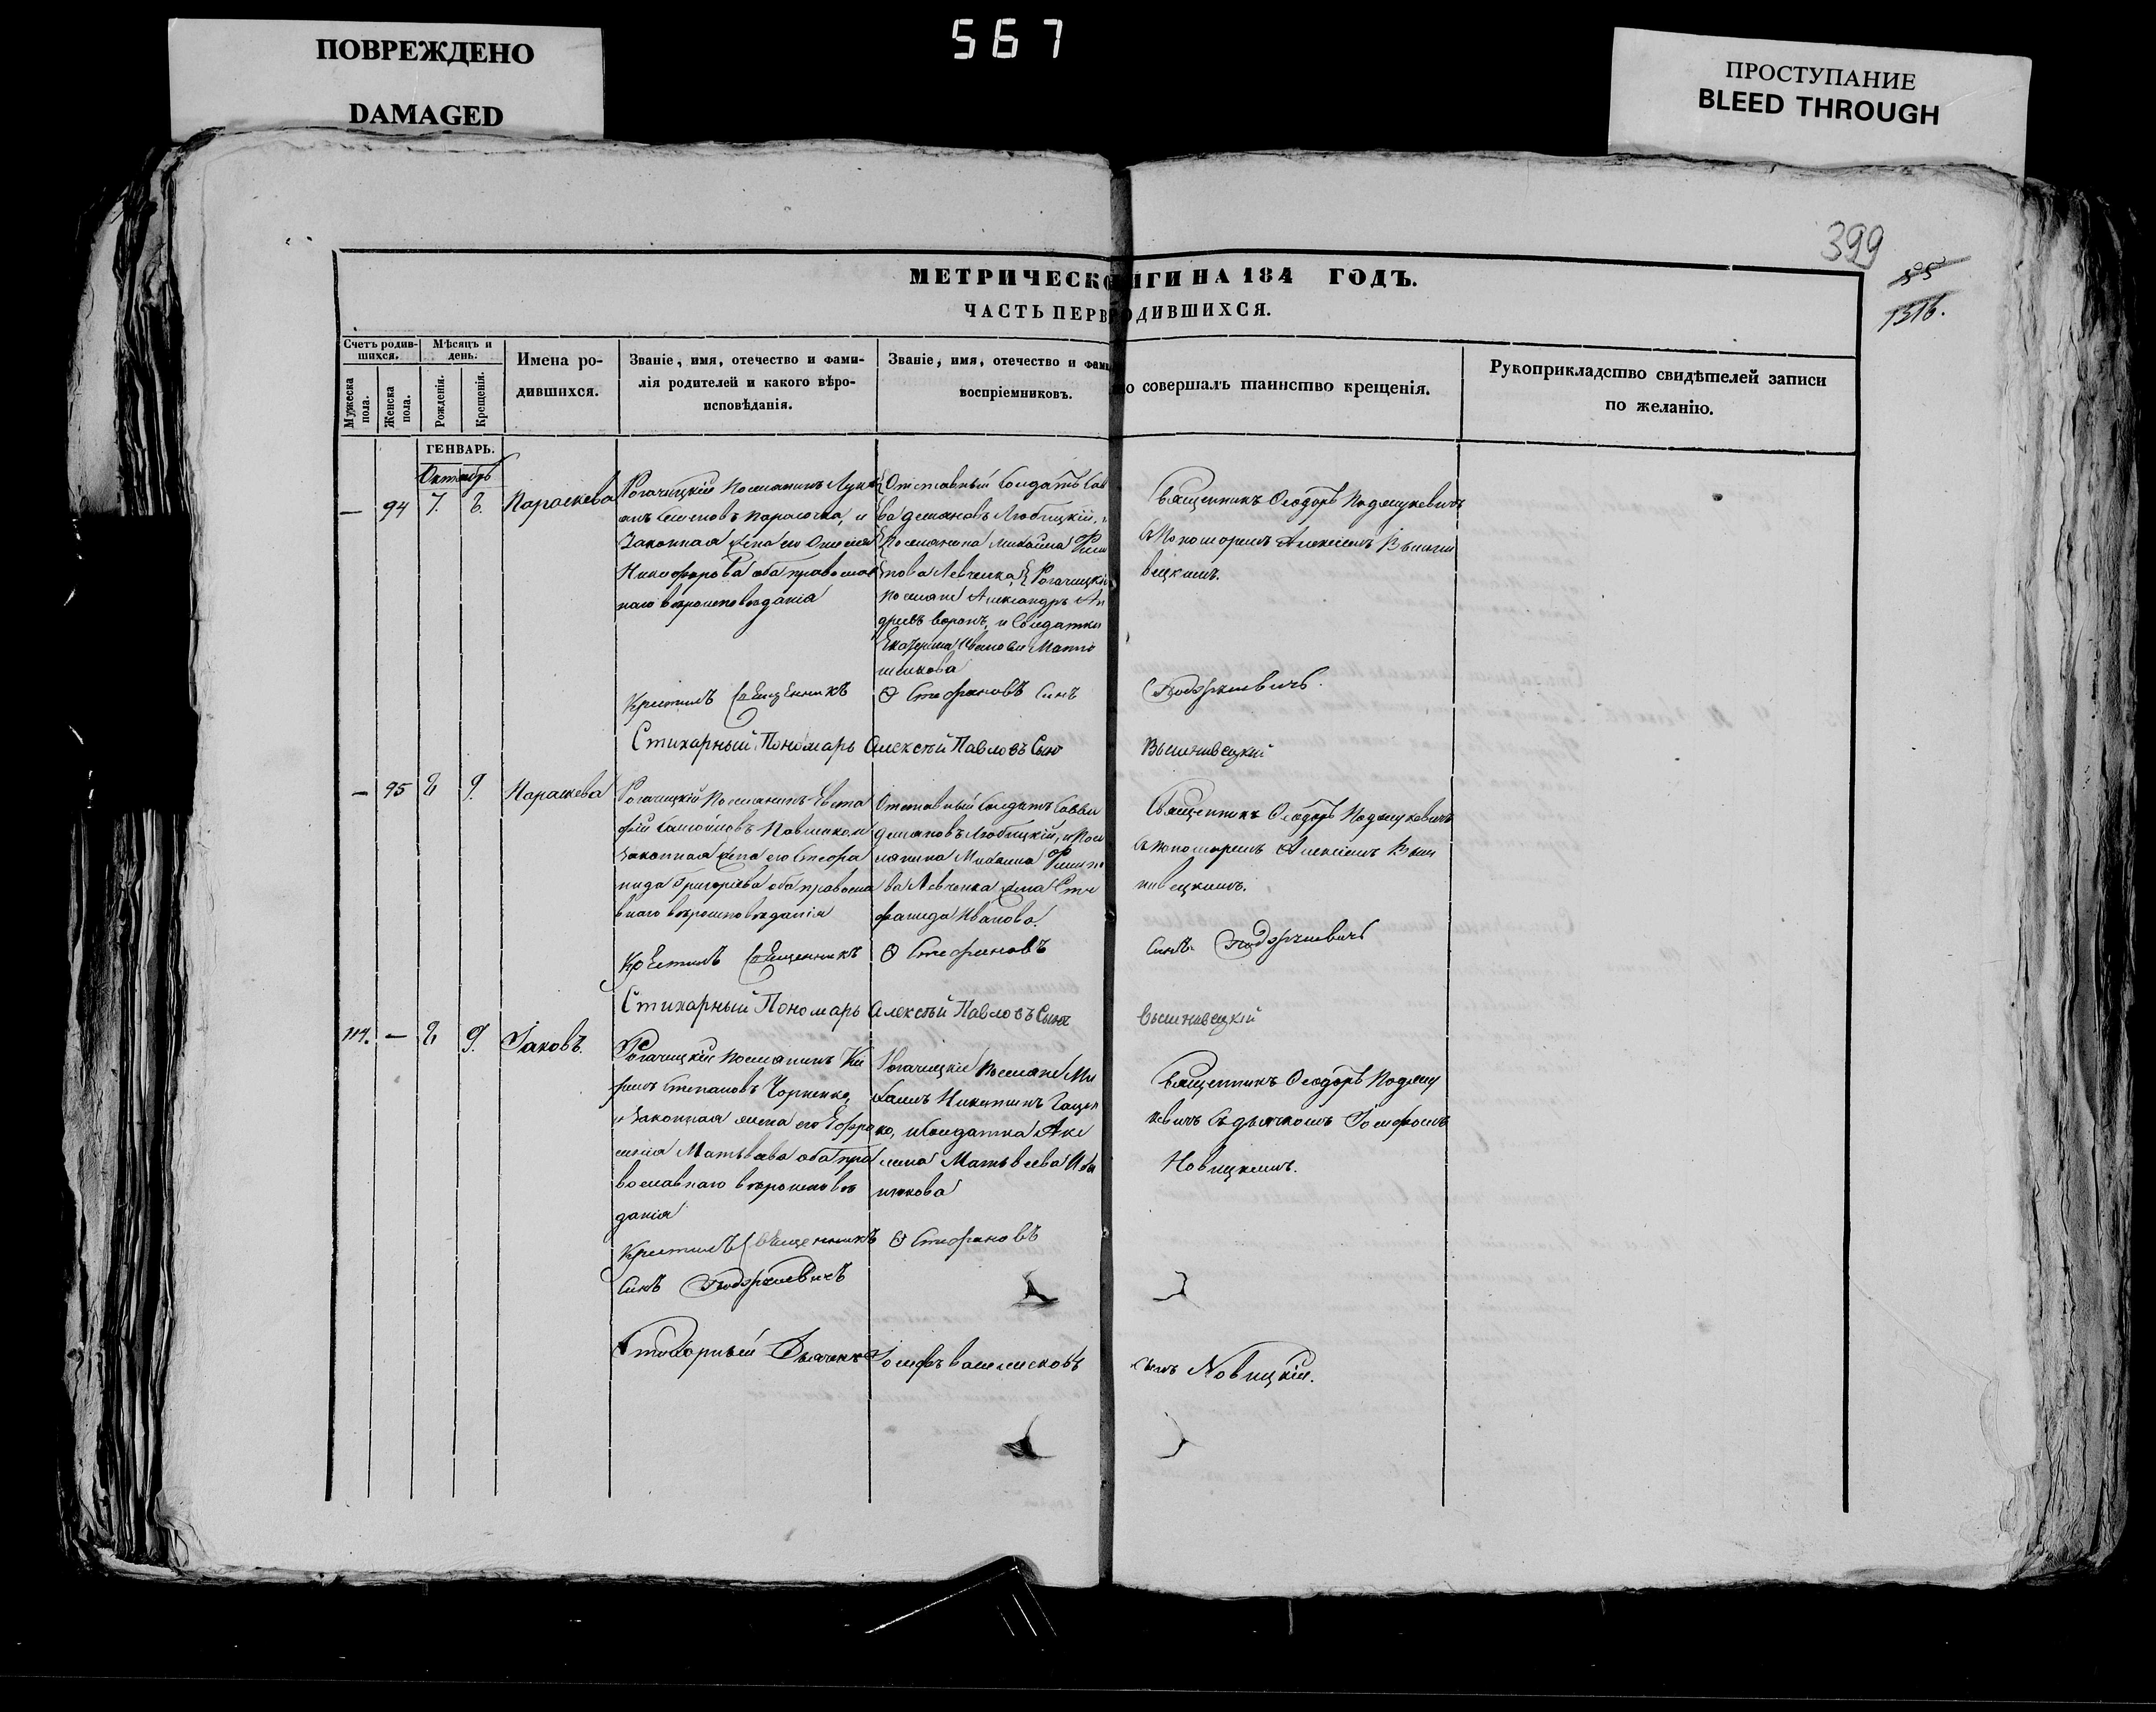 ПОВРЕЖДЕНО
DAMAGED
567
ПРОСТУПАНИЕ
BLEED THROUGH
399
55
1316.
МЕТРИЧЕСКО ИГИ НА 184 ГОДЪ.
ЧАСТЬ ПЕРВ ОДИВШИХСЯ.
Счетъ родив-
шихся.
Мѣсяцъ и
день.
Мужеска
пола.
Женска
пола.
Рожденія.
Крещенія.
Имена ро-
дившихся.
Званіе, имя, отечество и фами-
лія родителей и какого вѣро-
исповѣданія.
Званіе, имя, отечество и фами
воспріемниковъ.
о совершалъ таинство крещенія.
Рукоприкладство свидѣтелей записи
по желанію.
ГЕНВАРЬ.
Октябрь
— 94 7. 8. Параскева
Рогачицкій Поселянинъ
Законная жена его
Никифорова оба православ
наго вѣроисповѣданія
Отставный Солдатъ Сав
ва Демяновъ Любицкій, и
Поселянина Михаила Фили
пова Левченка, Рогачицкіи
поселяне Александръ Ан
дреевъ воронъ, и Солдатка
Екатерина Иванова
Священникъ Ѳеодоръ
съ Пономаремъ Алексіемъ Вышни
вецкимъ.
Крестилъ Священникъ Ѳ Стефановъ Синъ
Стихарный Пономарь Алексѣй Павловъ Сынъ Вышнивецкій
— 95 8 9. Параскева
Рогачицкій Поселянинъ Евста
фій Самойловъ
Законная жена его Стефа
нида Григоріева оба правосла
внаго вѣроисповѣданія
Отставный Солдатъ Савва
Демяновъ Любицкій, и Посе
лянина Михаила Филипо
ва Левченка жена Сте
фанида Иванова.
Священникъ Ѳеодоръ
съ Пономаремъ Алексіемъ Выш
нивецкимъ.
Крестилъ Священникъ Ѳ Стефановъ Синъ
Стихарный Пономарь Алексѣй Павловъ Сынъ Вышнивецкій
114. — 8 9. Іаковъ.
Рогачицкій Поселянинъ Ки
рилъ Степановъ Чорненко,
и Законная жена его Ефро
синія Матвѣева оба пра
вославнаго вѣроисповѣ
данія
Рогачицкіе Поселяне Ми
хаилъ Никитинъ Гацен
ко, и Солдатка Аксе
нія Матвѣева
Священникъ Ѳеодоръ
съ дьячкомъ Іосифомъ
Новицкимъ.
Крестилъ Священникъ Ѳ Стефановъ
Синъ
Стихарный Дьячекъ Іосифъ сынъ Новицкій.